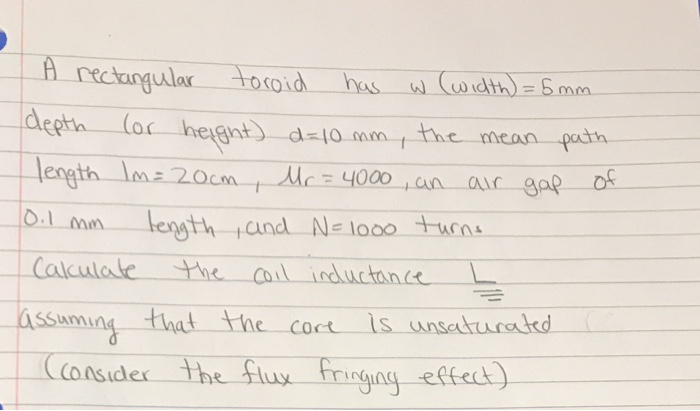 A rectangular toroid has w (width) = 5mm
depth (or height) d=10 mm, the mean path
length lm = 20cm, Mr = 4000, an air gap of
0.1 mm length, and N=1000 turns
Calculate the coil inductance L
assuming that the core is unsaturated
(consider the flux fringing effect)